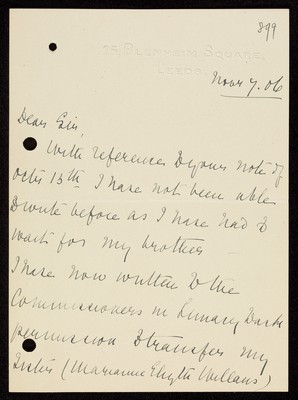 899
25, BLENHEIM SQUARE,
LEEDS.
Novr 7. 06
Dear Sir,
With reference to yours note of
octr 13th I have not been able
to write before as I have had to
wait for my brother
I have now written to the
Commissioners in Lunacy
permission to transfer my
Sister (Marianne Edyth Willans)